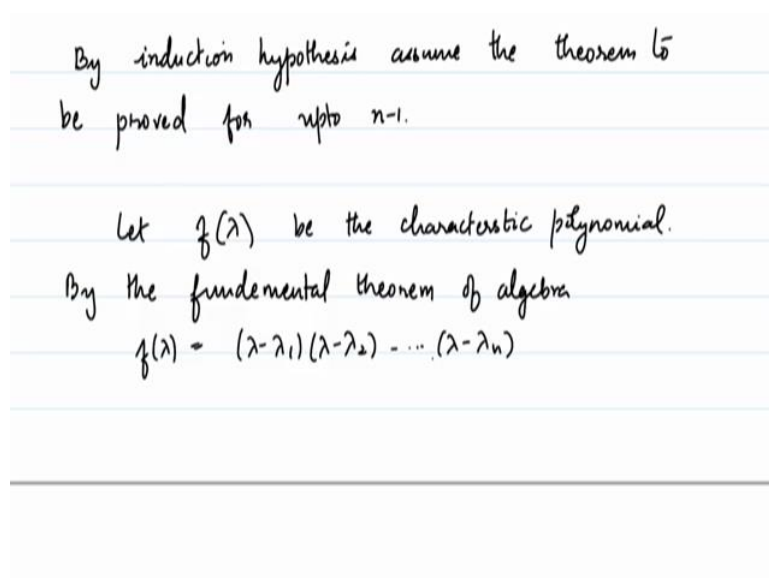 By induction hypothesis assume the theorem to
be proved for upto n-1.
Let f(λ) be the characterstic polynomial.
By the fundemental theorem of algebra
f(λ) = (λ-λ₁)(λ-λ₂) - ... (λ-λₙ)